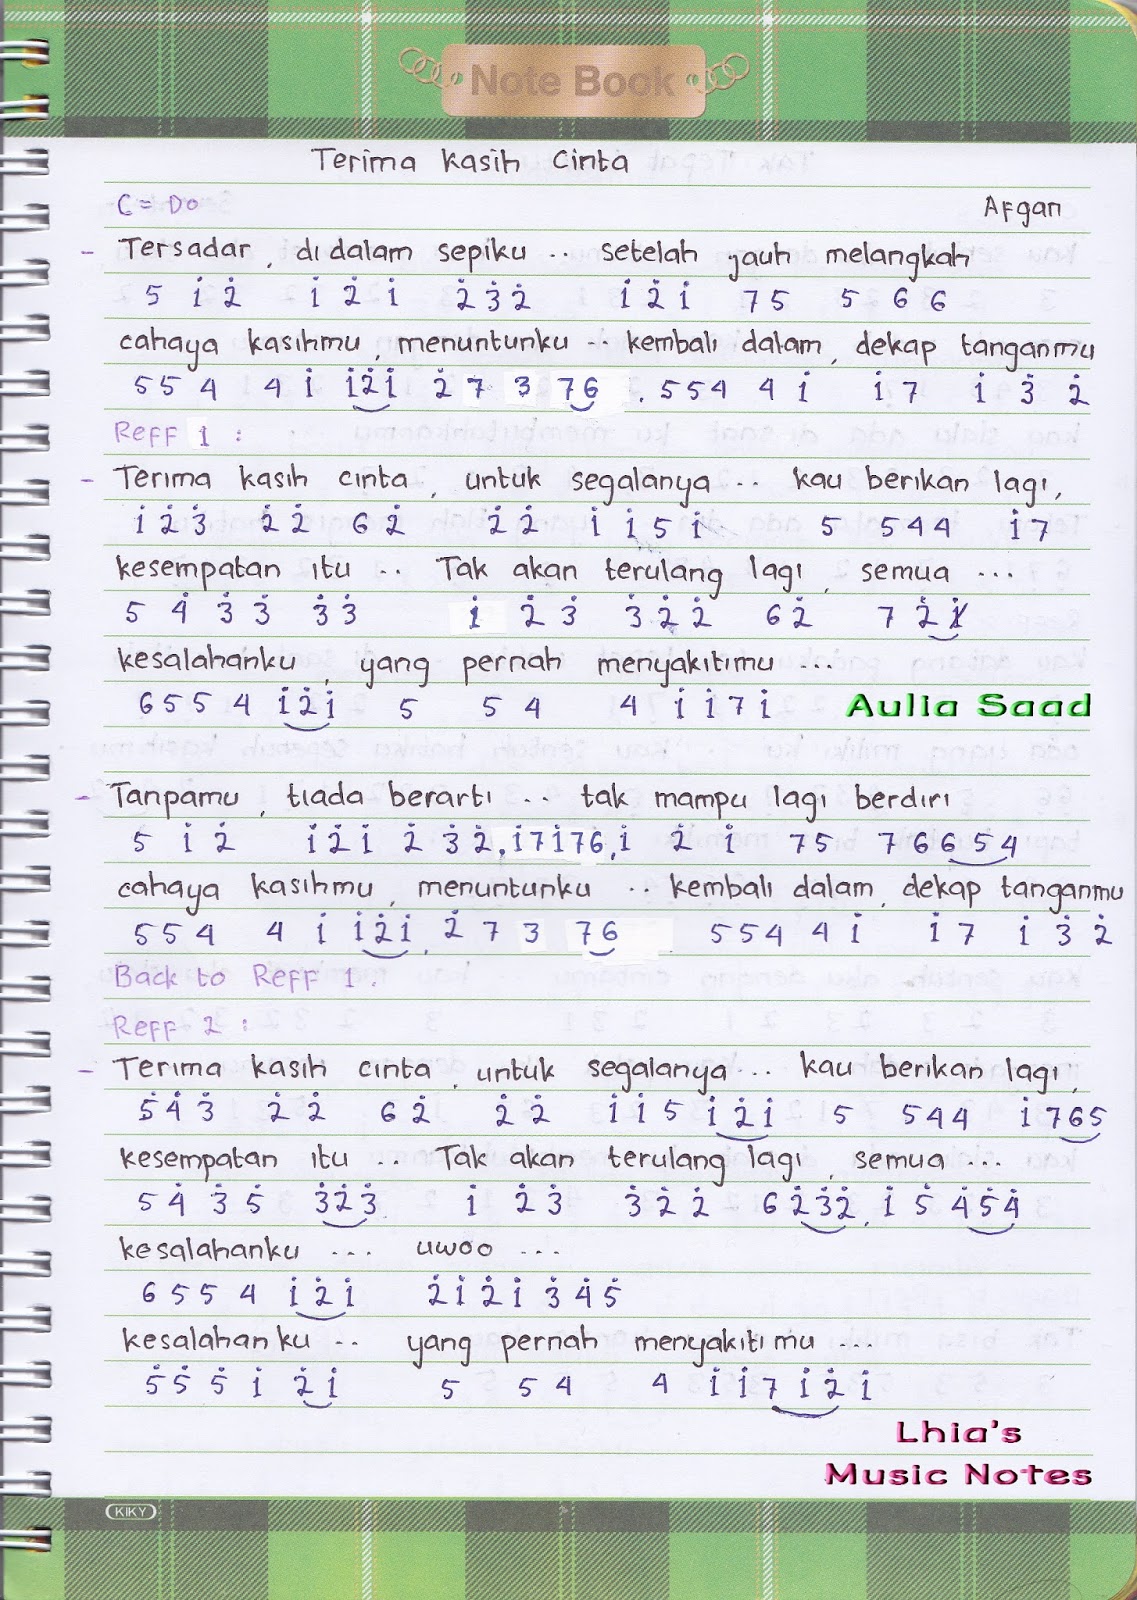 Note Book
Terima kasih cinta
C = Do Afgan
- Tersadar, di dalam sepiku .. setelah jauh melangkah
5 i̇ 2̇ i̇ 2̇ i̇ 2̇ 3̇ 2̇ i̇ 2̇ i̇ 7 5 5 6 6
cahaya kasihmu, menuntunku .. kembali dalam, dekap tanganmu
5 5 4 4 i̇ i̇ 2̇ i̇ 2̇ 7 3 7 6 . 5 5 4 4 i̇ i̇ 7 i̇ 3̇ 2̇
Reff 1 :
- Terima kasih cinta, untuk segalanya .. kau berikan lagi,
i̇ 2̇ 3̇ 2̇ 2̇ 6 2̇ 2̇ 2̇ i̇ i̇ 5 i̇ 5 5 4 4 i̇ 7
kesempatan itu .. Tak akan terulang lagi, semua ...
5 4̇ 3̇ 3̇ 3̇ 3̇ i̇ 2̇ 3̇ 3̇ 2̇ 2̇ 6 2̇ 7 2̇ i̇
kesalahanku, yang pernah menyakitimu ...
6 5 5 4 i̇ 2̇ i̇ 5 5 4 4 i̇ i̇ 7 i̇ Aulia Saad
- Tanpamu, tiada berarti .. tak mampu lagi berdiri
5 i̇ 2̇ i̇ 2̇ i̇ 2̇ 3̇ 2̇, i̇ 7 i̇ 7 6, i̇ 2̇ i̇ 7 5 7 6 6 6 5 4
cahaya kasihmu, menuntunku .. kembali dalam, dekap tanganmu
5 5 4 4 i̇ i̇ 2̇ i̇, 2̇ 7 3 7 6 5 5 4 4 i̇ i̇ 7 i̇ 3̇ 2̇
Back to Reff 1 .
Reff 2 :
- Terima kasih cinta, untuk segalanya... kau berikan lagi,
5̇ 4̇ 3̇ 2̇ 2̇ 6 2̇ 2̇ 2̇ i̇ i̇ 5 i̇ 2̇ i̇ 5 5 4 4 i̇ 7 6 5
kesempatan itu .. Tak akan terulang lagi, semua ...
5 4̇ 3̇ 5̇ 3̇ 2̇ 3̇ i̇ 2̇ 3̇ 3̇ 2̇ 2̇ 6 2̇ 3̇ 2̇, i̇ 5̇ 4̇ 5̇ 4̇
kesalahanku ... uwoo ...
6 5 5 4 i̇ 2̇ i̇ 2̇ i̇ 2̇ i̇ 3̇ 4̇ 5̇
kesalahanku .. yang pernah menyakitimu ...
5̇ 5̇ 5̇ i̇ 2̇ i̇ 5 5 4 4 i̇ i̇ 7 i̇ 2̇ i̇
Lhia's
Music Notes
KIKY